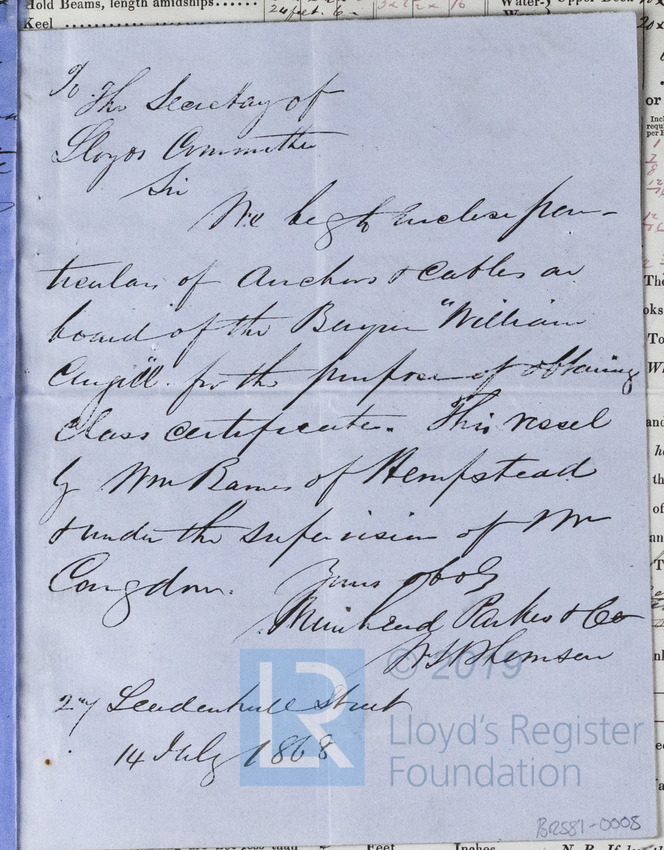 Hold Beams, length amidships
Keel
To The Secretary of
Lloyds Committee
Sir
We beg to Enclose par-
ticulars of Anchors & Cables on
board of the "William
Cargill" for the purpose of obtaining
Class certificate. This vessel
by Wm of Hempstead
& under the supervision of Mr
Congdon. Yours
Muirhead Parkes & Co
Leadenhall Street
14 July 1868
© 2019
LR
Lloyd's Register
Foundation
BRS87-0008
Feet
Inches